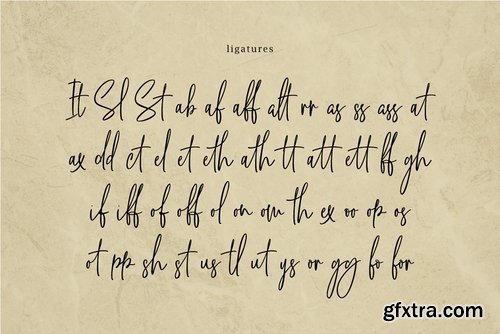 ligatures
It Sl St ab af aff alt rr as ss ass at
ax dd ct el et eth ath tt att ett ff gh
if iff of off ol on om th ex oo op os
ot pp sh st us tl ut ys or gg fo for
gfxtra.com